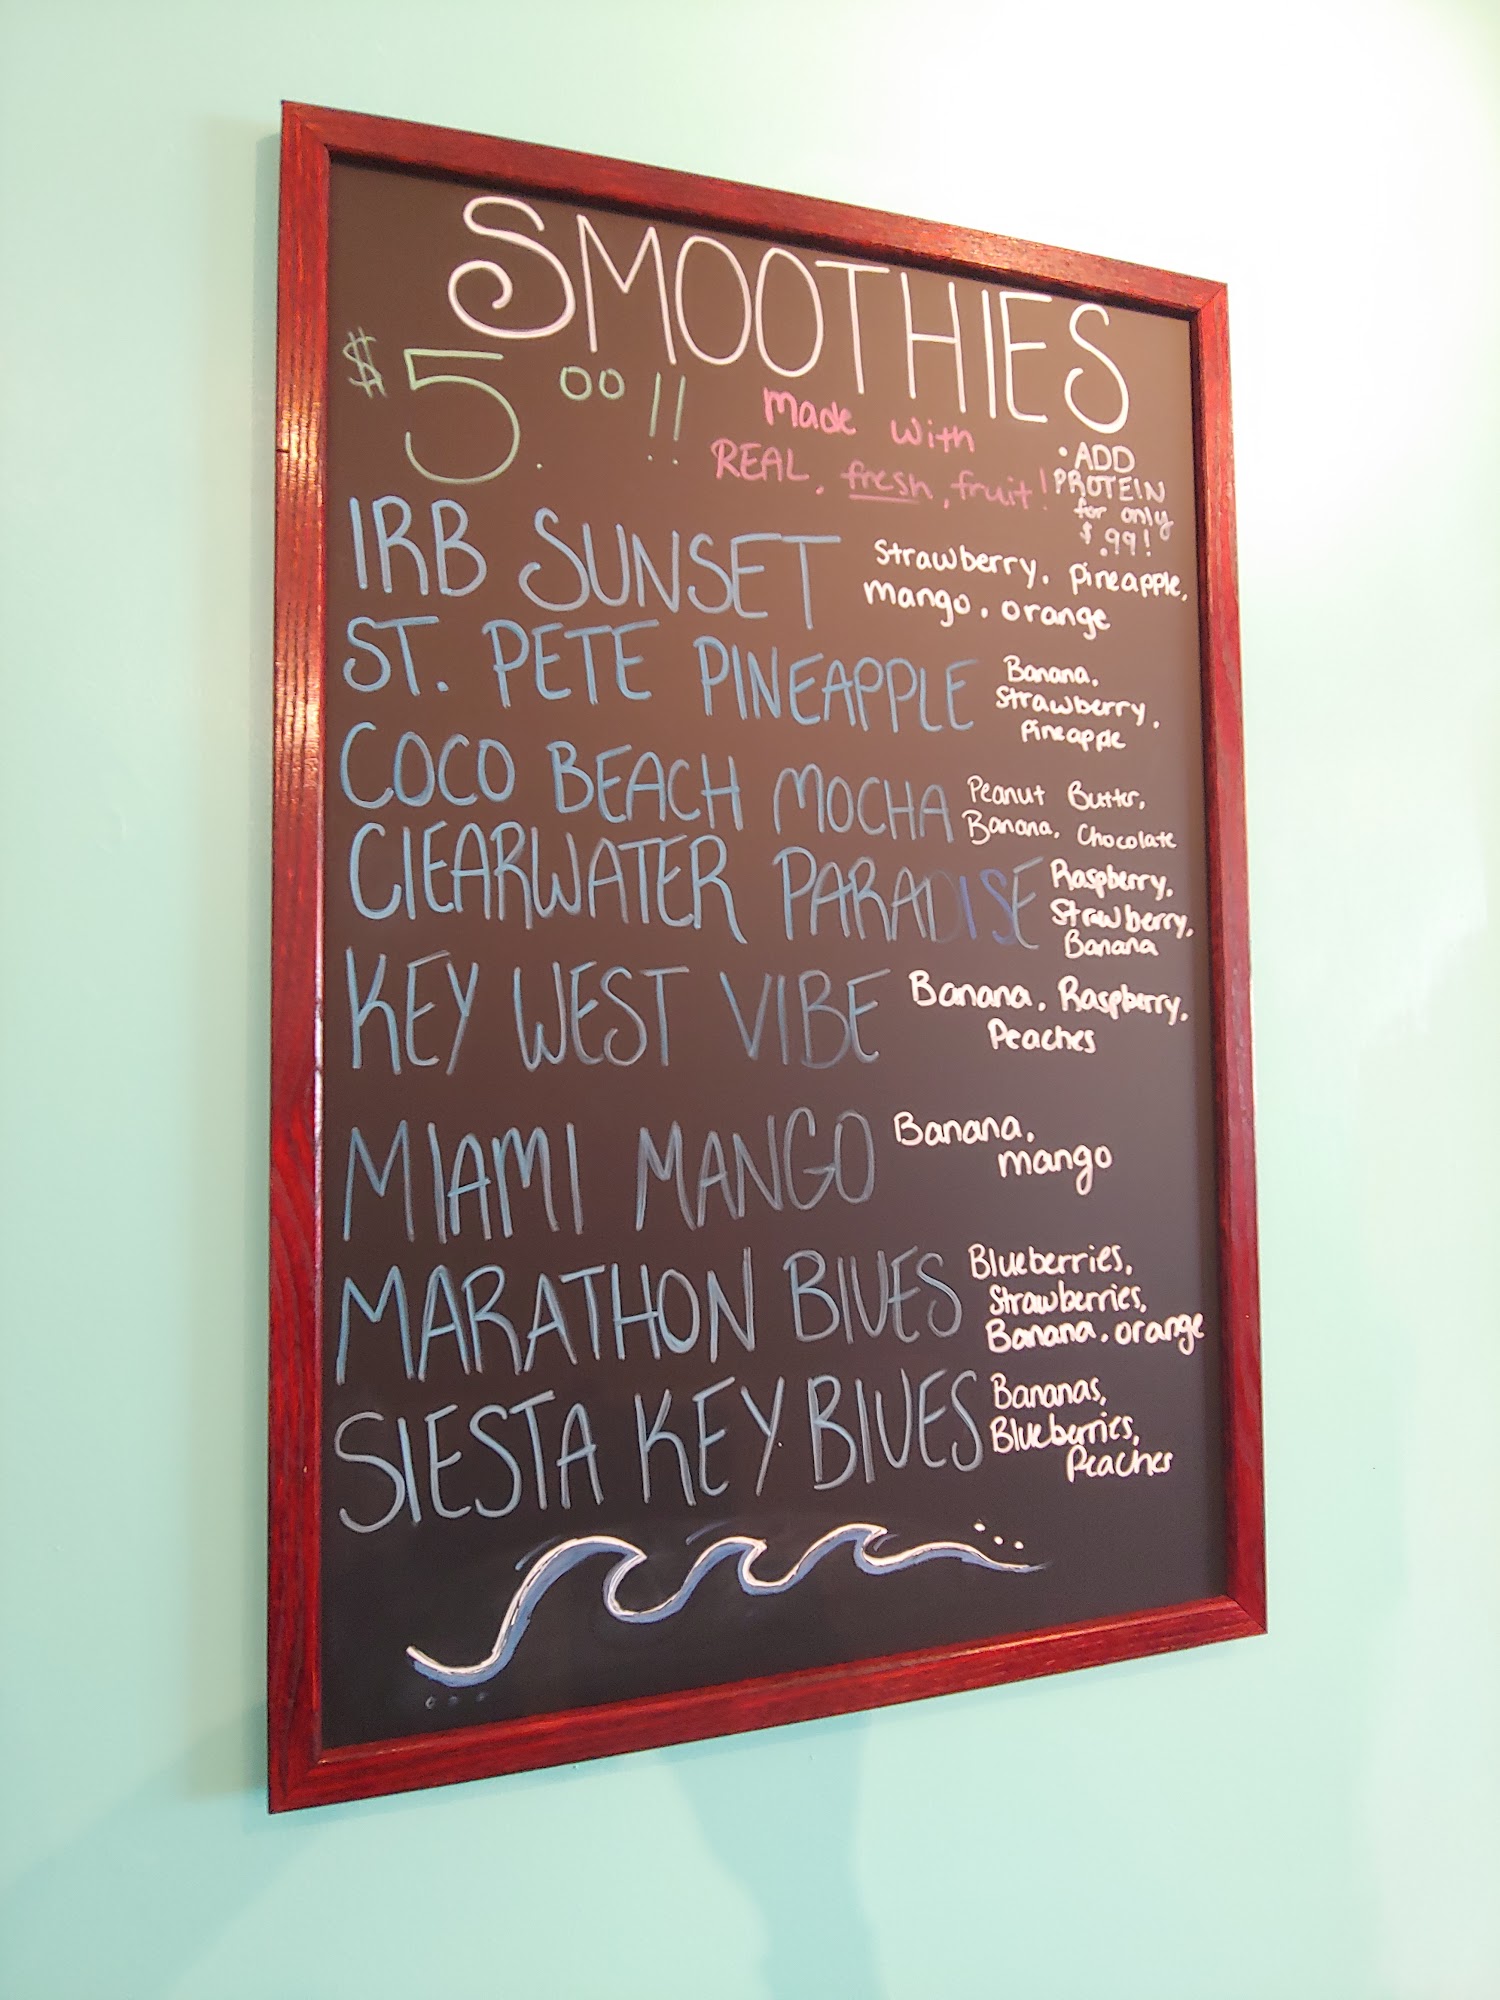 SMOOTHIES
$5.00!!
Made with
REAL, fresh, fruit!
• ADD
PROTEIN
for only
$.99!
IRB SUNSET
Strawberry, Pineapple,
Mango, orange
ST. PETE PINEAPPLE
Banana,
Strawberry,
Pineapple
COCO BEACH MOCHA
Peanut Butter,
Banana, Chocolate
ClEARWATER PARADISE
Raspberry,
Strawberry,
Banana
KEY WEST VIBE
Banana, Raspberry,
Peaches
MIAMI MANGO
Banana,
mango
MARATHON BlUES
Blueberries,
Strawberries,
Banana, orange
SIESTA KEY BlUES
Bananas,
Blueberries,
Peaches